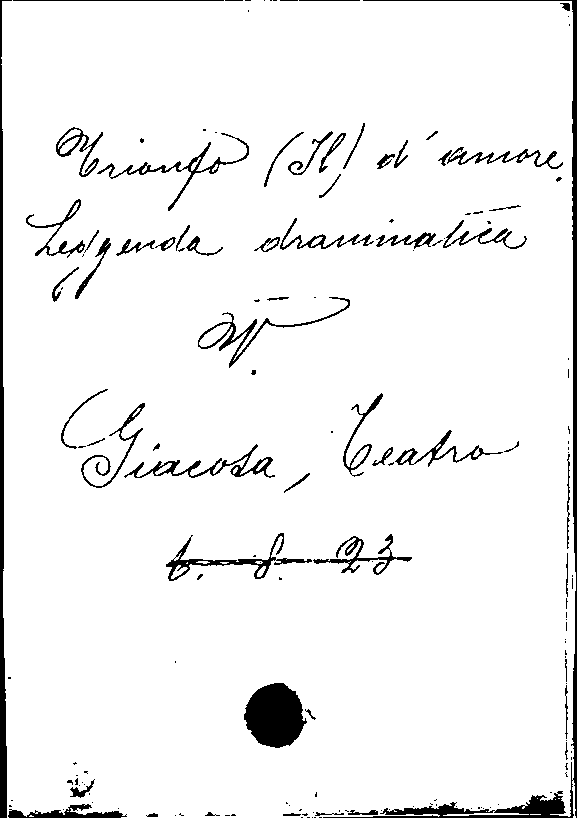 Trionfo (Il) d'amore.
Leggenda drammatica
V.
Giacosa, Teatro
6. 8. 23